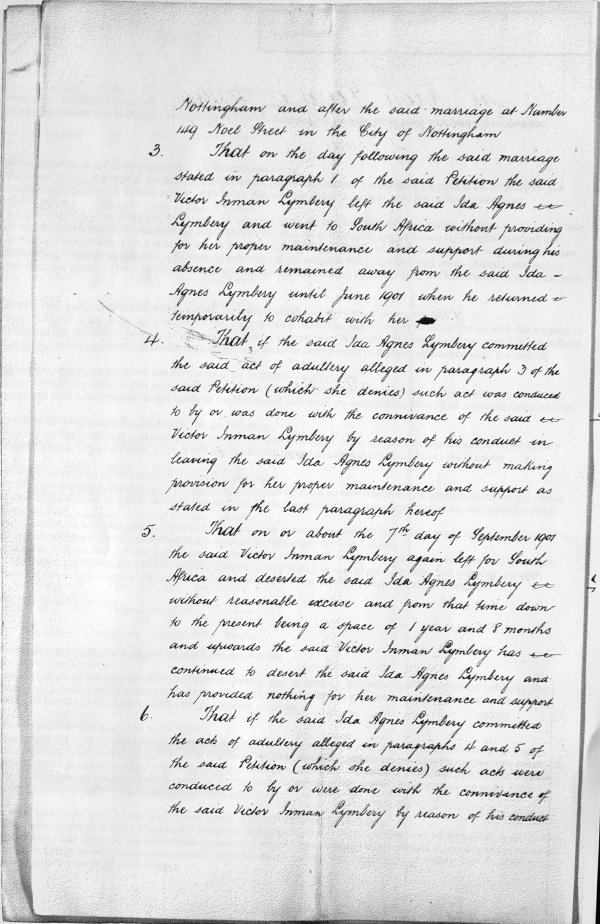 Nottingham and after the said marriage at Number
149 Noel Street in the City of Nottingham
3. That on the day following the said marriage
stated in paragraph 1 of the said Petition the said
Victor Inman Lymbery left the said Ida Agnes
Lymbery and went to South Africa without providing
for her proper maintenance and support during his
absence and remained away from the said Ida -
Agnes Lymbery until June 1901 when he returned
temporarily to cohabit with her
4. That if the said Ida Agnes Lymbery committed
the said act of adultery alleged in paragraph 3 of the
said Petition (which she denies) such act was conduced
to by or was done with the connivance of the said
Victor Inman Lymbery by reason of his conduct in
leaving the said Ida Agnes Lymbery without making
provision for her proper maintenance and support as
stated in the last paragraph hereof
5. That on or about the 7th day of September 1901
the said Victor Inman Lymbery again left for South
Africa and deserted the said Ida Agnes Lymbery
without reasonable excuse and from that time down
to the present being a space of 1 year and 8 months
and upwards the said Victor Inman Lymbery has
continued to desert the said Ida Agnes Lymbery and
has provided nothing for her maintenance and support
6. That if the said Ida Agnes Lymbery committed
the acts of adultery alleged in paragraphs 4 and 5 of
the said Petition (which she denies) such acts were
conduced to by or were done with the connivance of
the said Victor Inman Lymbery by reason of his conduct